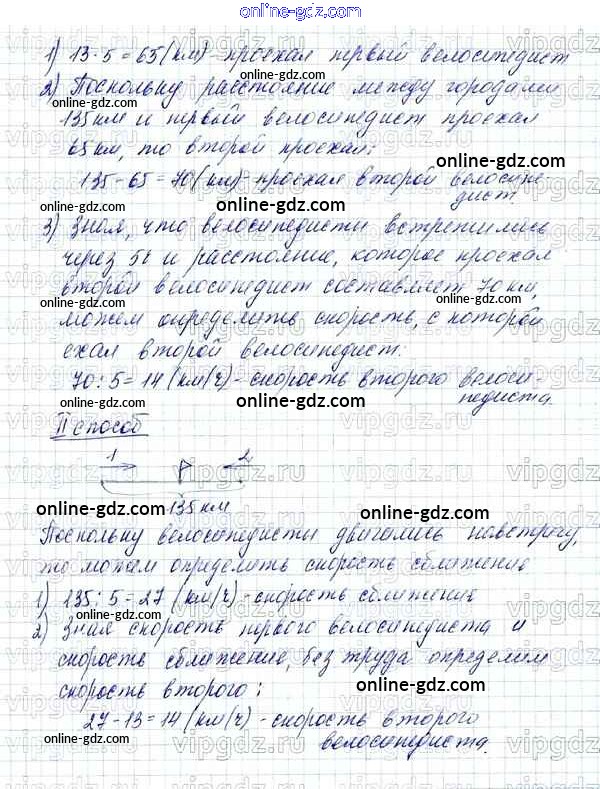 online-gdz.com
1) 13·5=65(км)-проехал первый велосипедист
2) Поскольку расстояние между городами
online-gdz.com
135км и первый велосипедист проехал
65км, то второй проехал:
online-gdz.com
135-65=70(км)-проехал второй велосипе-
дист
online-gdz.com
3) Зная, что велосипедисты встретились
через 5ч и расстояние, которое проехал
второй велосипедист составляет 70 км,
online-gdz.com
online-gdz.com
можем определить скорость, с которой
ехал второй велосипедист:
70:5=14(км/ч)-скорость второго велоси-
педиста.
online-gdz.com
II способ
vipgdz.ru
1 2
135 км
online-gdz.com
online-gdz.com
Поскольку велосипедисты двигались навстречу,
то можем определить скорость сближение
online-gdz.com
1) 135:5=27 (км/ч)-скорость сближение
2) Зная скорость первого велосипедиста и
online-gdz.com
скорость сближение, без труда определим
скорость второго:
online-gdz.com
27-13=14(км/ч)-скорость второго
велосипедиста.
online-gdz.com